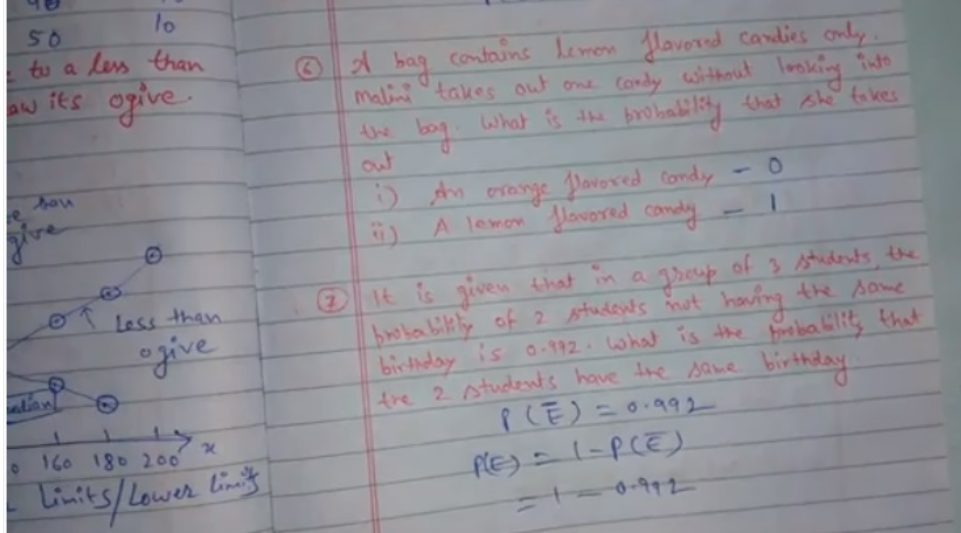 50 10
to a less than
its ogive.
give
Less than
ogive
160 180 200 x
Limits/Lower limits
6 A bag contains lemon flavored candies only.
Malini takes out one candy without looking into
the bag. What is the probability that she takes
out
i) An orange flavored candy - 0
ii) A lemon flavored candy - 1
7 It is given that in a group of 3 students, the
probability of 2 students not having the same
birthday is 0.992. What is the probability that
the 2 students have the same birthday.
P(Ē) = 0.992
P(E) = 1-P(Ē)
= 1 - 0.992